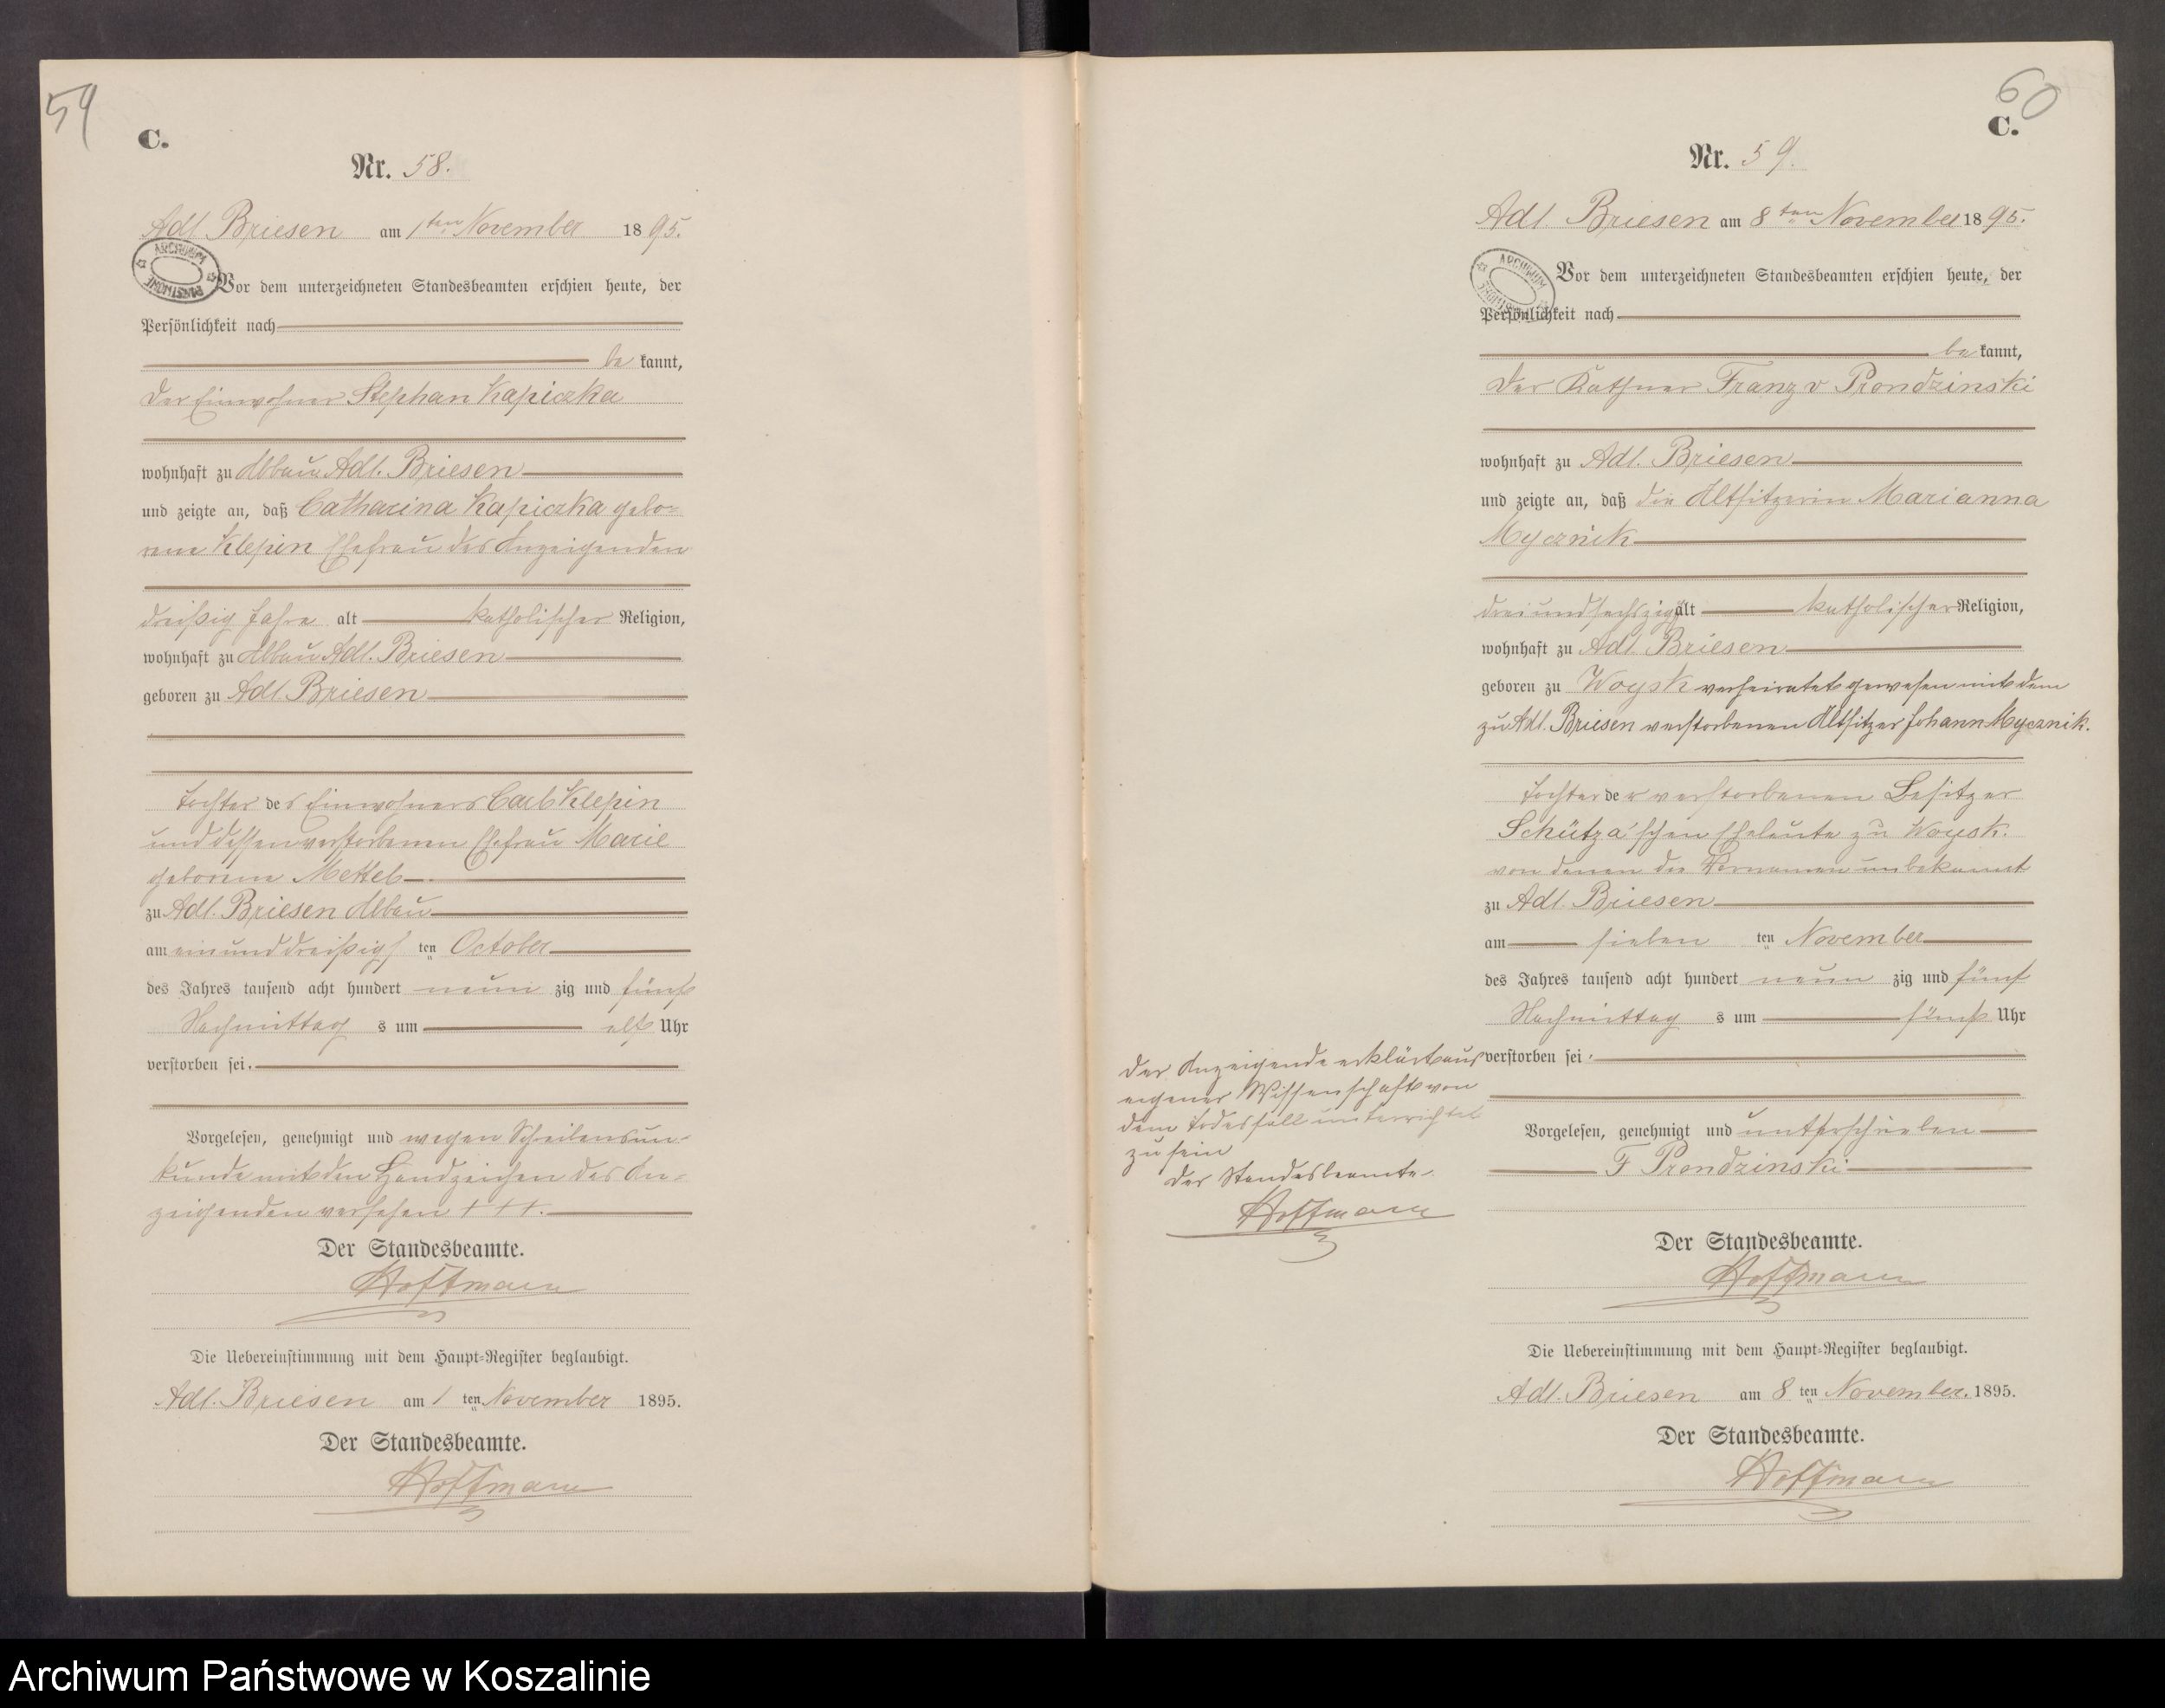 59
C.
Nr. 58.
Adl. Briesen am 1ten November 1895.
ARCHIWUM PAŃSTWOWE
Vor dem unterzeichneten Standesbeamten erschien heute, der
Persönlichkeit nach
be kannt,
der Einwohner Stephan Kapiczka
wohnhaft zu Abbau Adl. Briesen
und zeigte an, daß Catharina Kapiczka gebo-
rene Klepin Ehefrau des Anzeigenden
dreißig Jahre alt katholischer Religion,
wohnhaft zu Abbau Adl. Briesen
geboren zu Adl. Briesen
Tochter des Einwohners Carl Klepin
und dessen verstorbenen Ehefrau Marie
geborene
zu Adl. Briesen Abbau
am einunddreißigsten October
des Jahres tausend acht hundert neun zig und fünf
Nachmittag s um elf Uhr
verstorben sei.
Vorgelesen, genehmigt und wegen Schreibensun-
kunde mit den Handzeichen des An-
zeigenden versehen +++.
Der Standesbeamte.
Hoffmann
Die Uebereinstimmung mit dem Haupt-Register beglaubigt.
Adl. Briesen am 1 ten November 1895.
Der Standesbeamte.
Hoffmann
60
C.
Nr. 59.
Adl. Briesen am 8ten November 1895.
ARCHIWUM
Vor dem unterzeichneten Standesbeamten erschien heute, der
Persönlichkeit nach
be kannt,
der Käthner Franz v Prondzinski
wohnhaft zu Adl. Briesen
und zeigte an, daß die Altsitzerin Marianna
Mycznik
dreiundsechszig alt katholischer Religion,
wohnhaft zu Adl Briesen
geboren zu Woysk verheiratet gewesen mit dem
zu Adl. Briesen verstorbenen Altsitzer Johann Mycznik.
Tochter der verstorbenen Besitzer
Schütza'schen Eheleute zu Woysk.
von denen die Vornamen unbekannt
zu Adl. Briesen
am sieben ten November
des Jahres tausend acht hundert neun zig und fünf
Nachmittag s um fünf Uhr
verstorben sei.
Der Anzeigende erklärt aus
eigener Wissenschaft von
dem Todesfall unterrichtet
zu sein
Der Standesbeamte.
Hoffmann
Vorgelesen, genehmigt und unterschrieben
F Prondzinski
Der Standesbeamte.
Hoffmann
Die Uebereinstimmung mit dem Haupt-Register beglaubigt.
Adl. Briesen am 8 ten November. 1895.
Der Standesbeamte.
Hoffmann
Archiwum Państwowe w Koszalinie